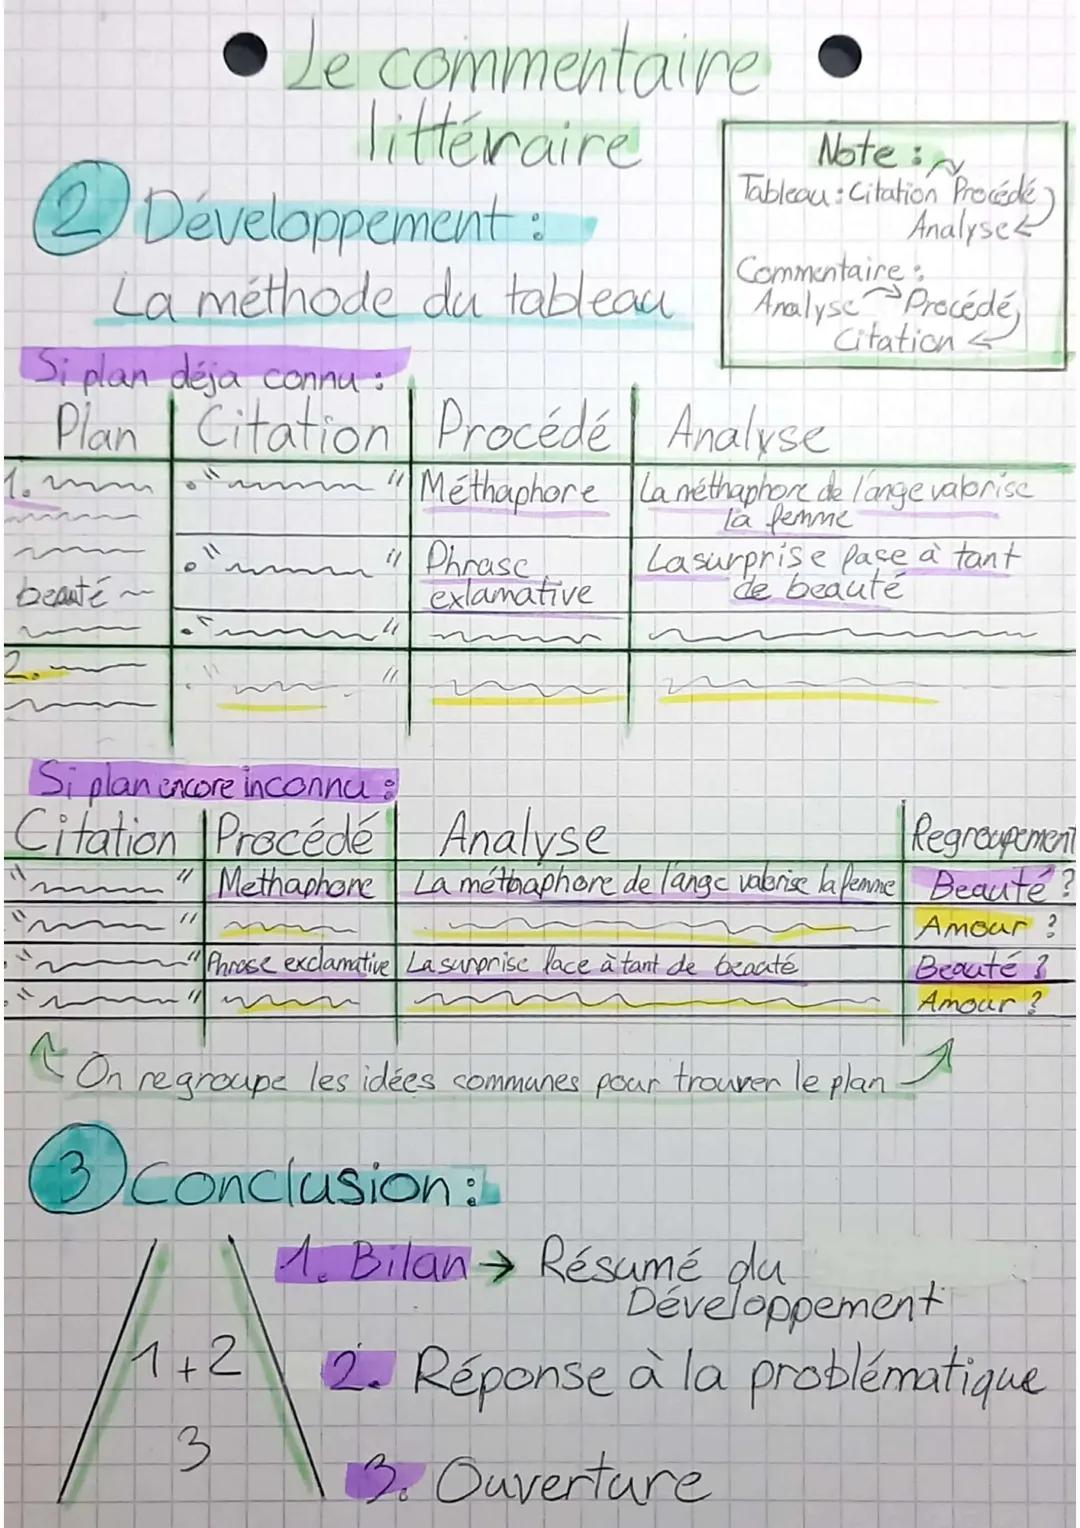 Le commentaire
littéraire
Note :
Tableau : Citation Procédé
Analyse
Commentaire :
Analyse Procédé
Citation
2 Développement :
La méthode du tableau
Si plan déja connu :
Plan Citation Procédé Analyse
1. " " Méthaphore La méthaphore de l'ange valorise
la femme
" " Phrase La surprise face à tant
beauté exlamative de beauté
" "
2. " "
Si plan encore inconnu :
Citation Procédé Analyse Regroupement
" " Methaphore La méthaphore de l'ange valorise la femme Beauté ?
" " Amour ?
" " Phrase exclamative La surprise face à tant de beauté Beauté ?
" " Amour ?
On regroupe les idées communes pour trouver le plan
3 Conclusion :
1. Bilan → Résumé du
Développement
1+2 2. Réponse à la problématique
3 3. Ouverture